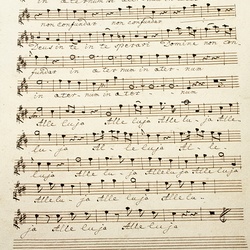 in aeternum
non confundar non confundar
Deus in te in te speravi Domine non con
fundar in aeternum in aeter num
in aeter num in aeter num
Alle luja Alle luja Alle lu ja Alle
lu ja Al le luja Al le
lu ja Alle lu ja Alleluja Alle luja
Alle lu ja Alle luja Alle lu
ja Alle luja